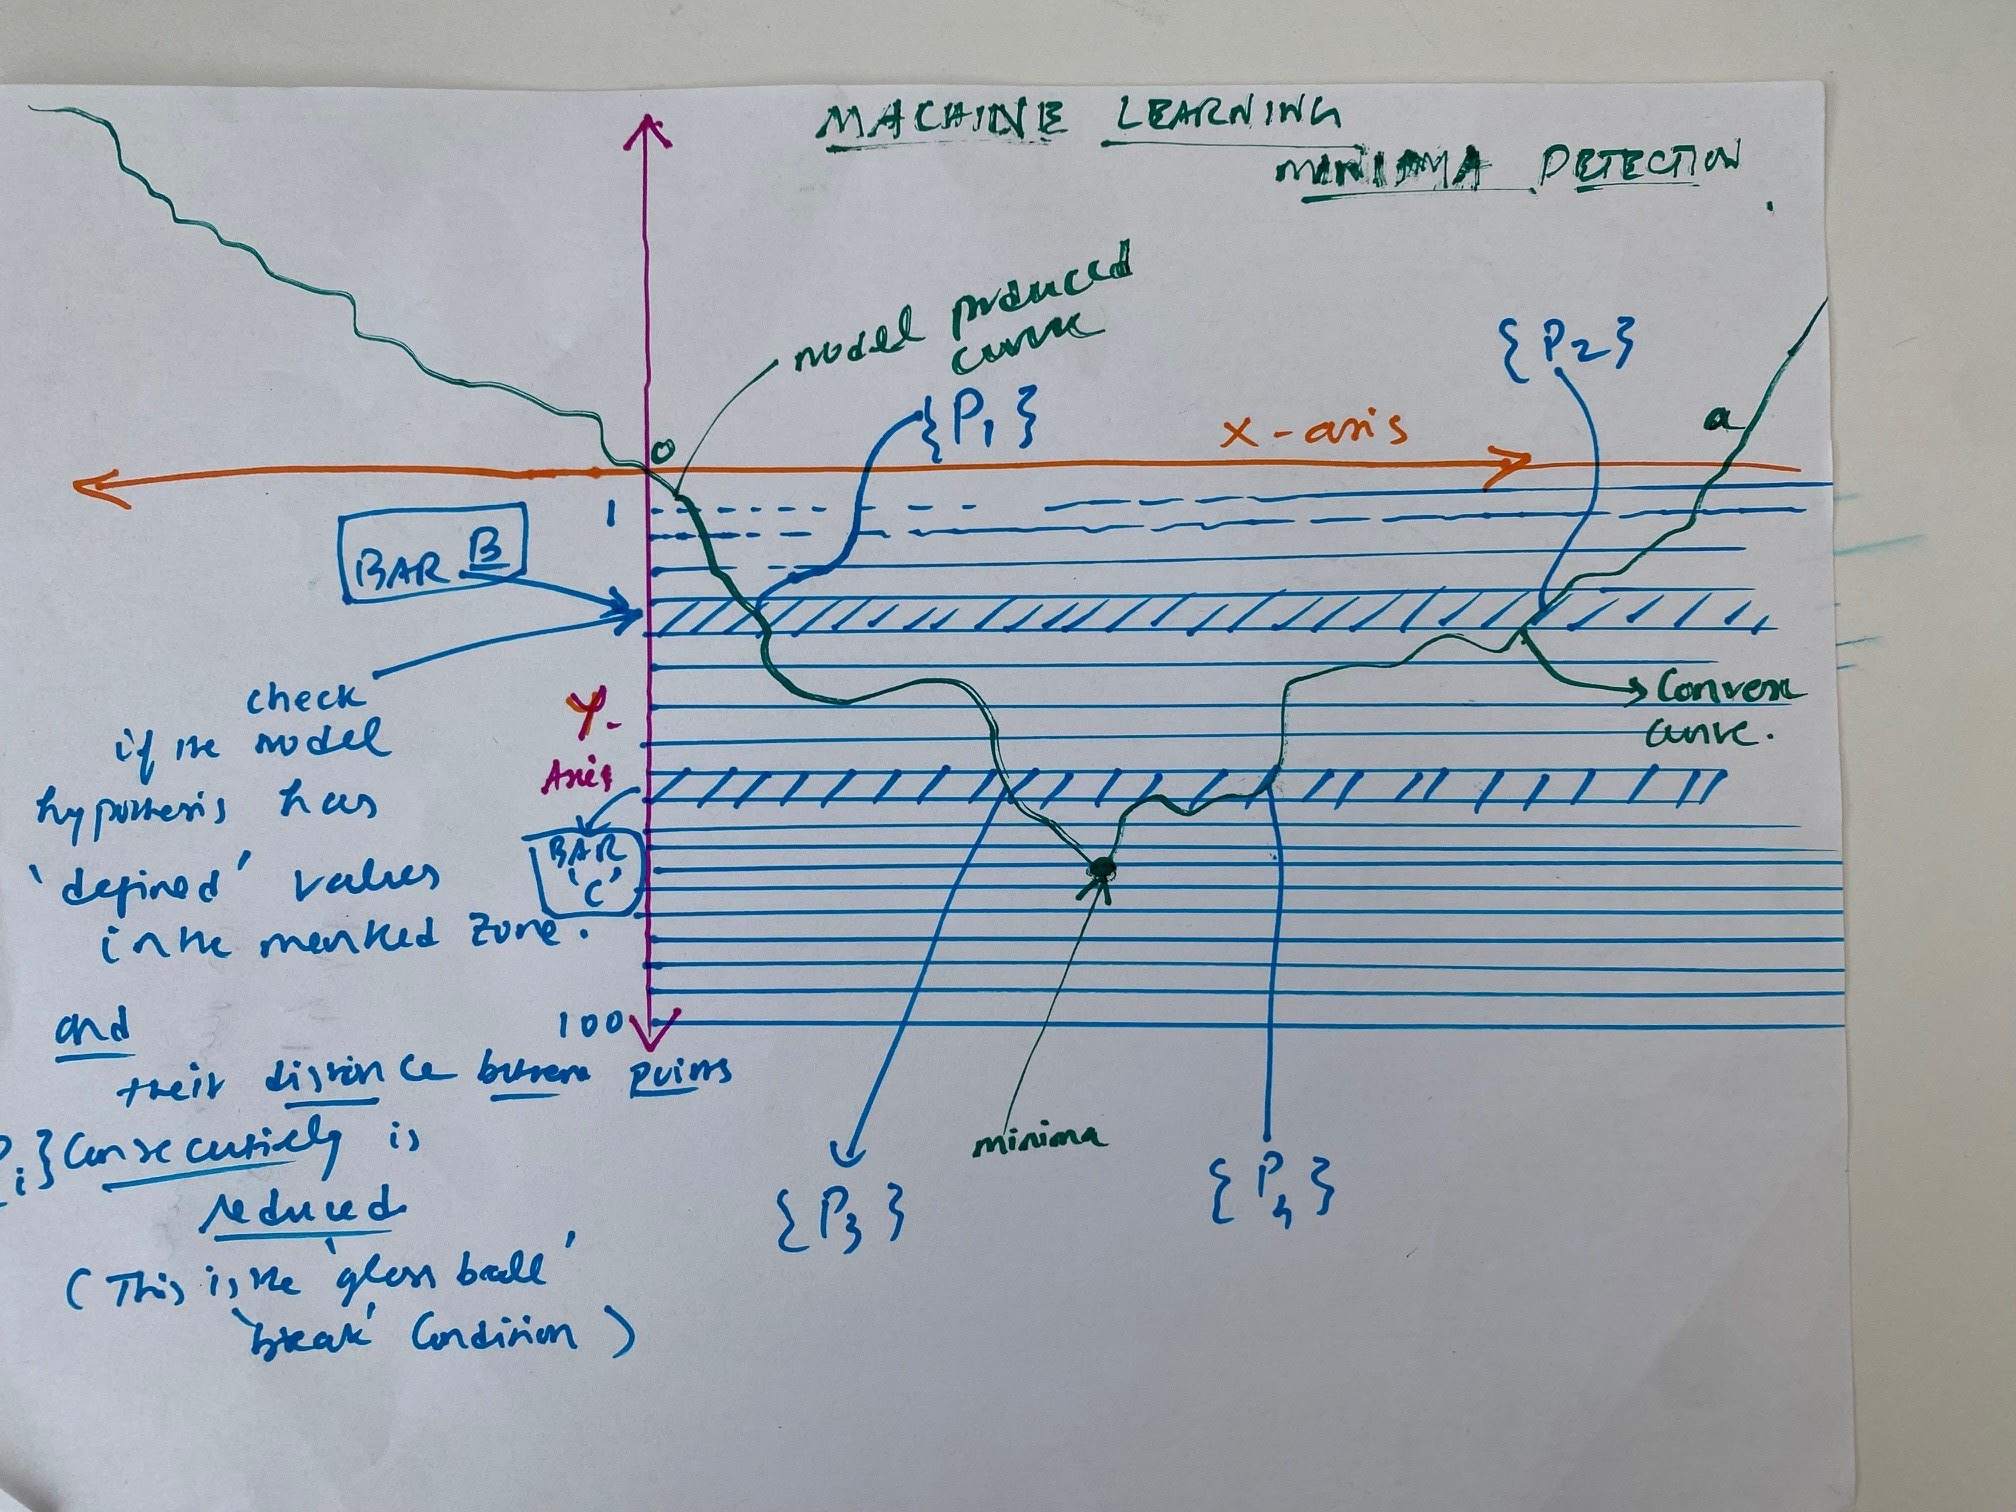 MACHINE LEARNING
MINIMA DETECTION
model produced
curve
{P1}
{P2}
x-axis
a
0
1
BAR B
check
if the model
hypothesis has
'defined' values
in the marked zone.
Y-
Axis
BAR
'C'
Convex
curve.
100
and
their distance between points
i} Consecutively is
reduced
(This is the 'glass ball'
'break' Condition)
minima
{P3}
{P4}